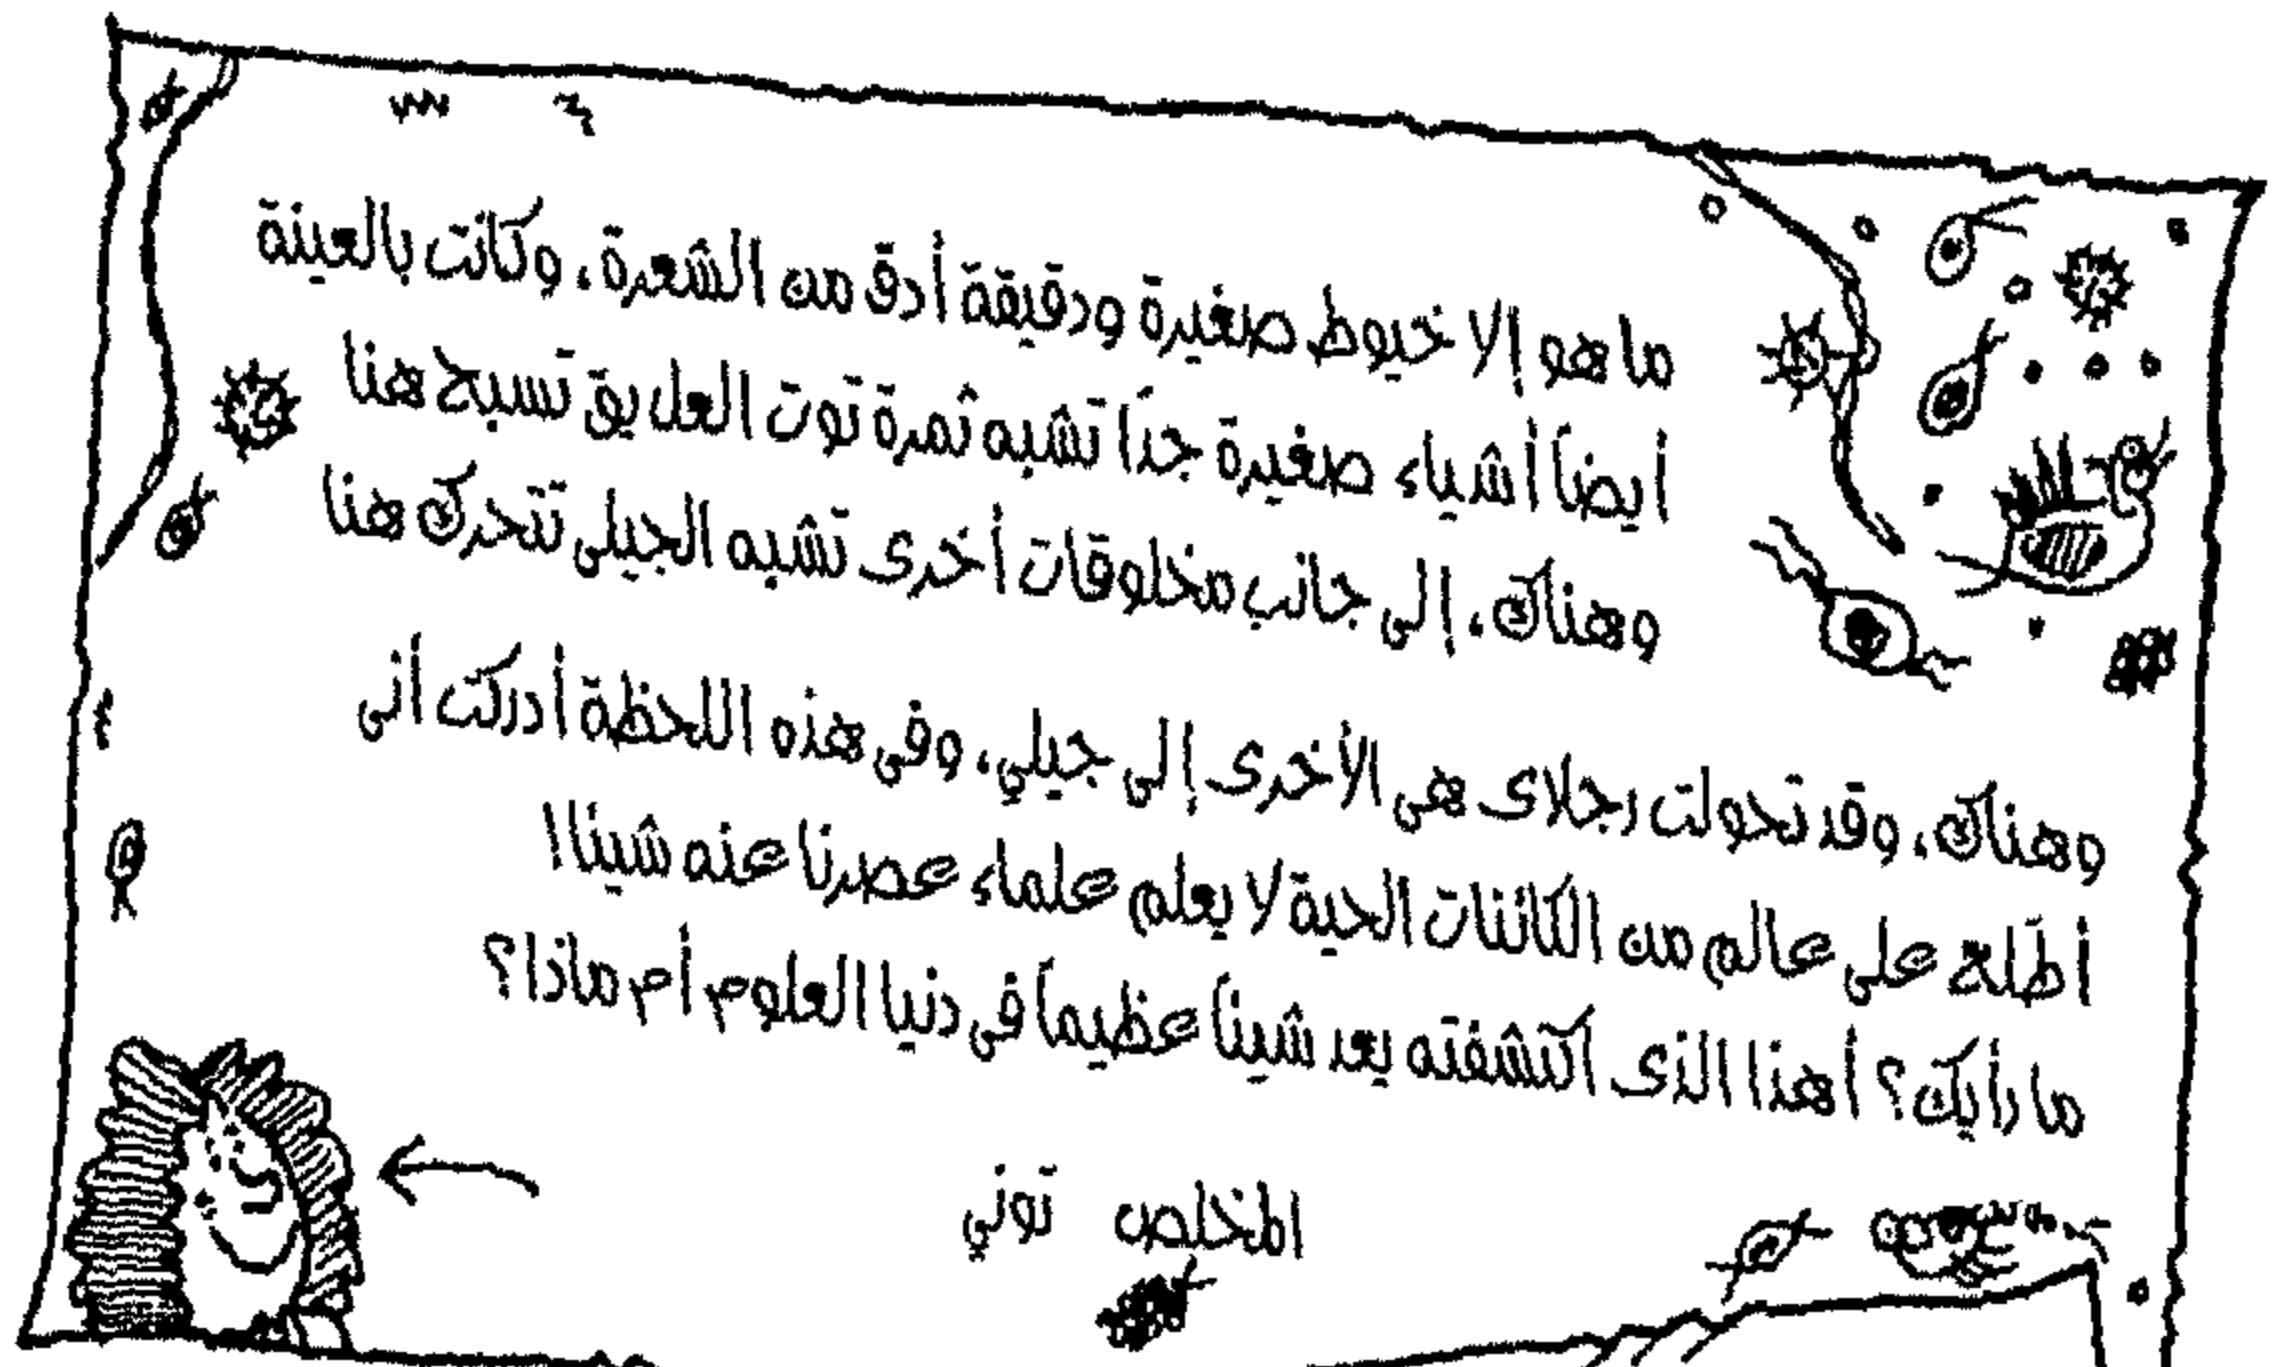 ما هو إلا خيوط صغيرة ودقيقة أدق من الشعرة، وكانت بالعينة
أيضاً أشياء صغيرة جداً تشبه ثمرة توت العليق تسبح هنا
وهناك، إلى جانب مخلوقات أخرى تشبه الجيلى تتحرك هنا
وهناك، وقد تحولت رجلاى هى الأخرى إلى جيلي، وفى هذه اللحظة أدركت أنى
أطلع على عالم من الكائنات الحية لا يعلم علماء عصرنا عنه شيئا!
ما رأيك؟ أهذا الذى اكتشفته يعد شيئاً عظيماً فى دنيا العلوم أم ماذا؟
المخلص توني